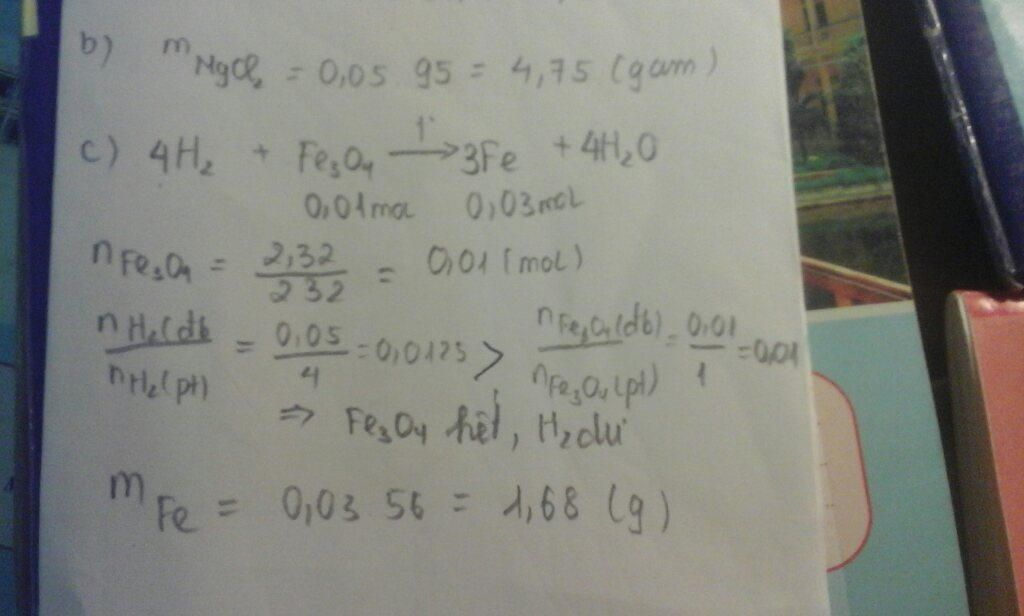 b) mMgCl₂ = 0,05 95 = 4,75 (gam)
c) 4H₂ + Fe₃O₄ —t°→ 3Fe + 4H₂O
0,01mol 0,03mol
nFe₃O₄ = 2,32/232 = 0,01 (mol)
nH₂(db/nH₂(pt) = 0,05/4 = 0,0125 > nFe₃O₄(db)/nFe₃O₄(pt) = 0,01/1 = 0,01
⇒ Fe₃O₄ hết, H₂ dư
mFe = 0,03 56 = 1,68 (g)